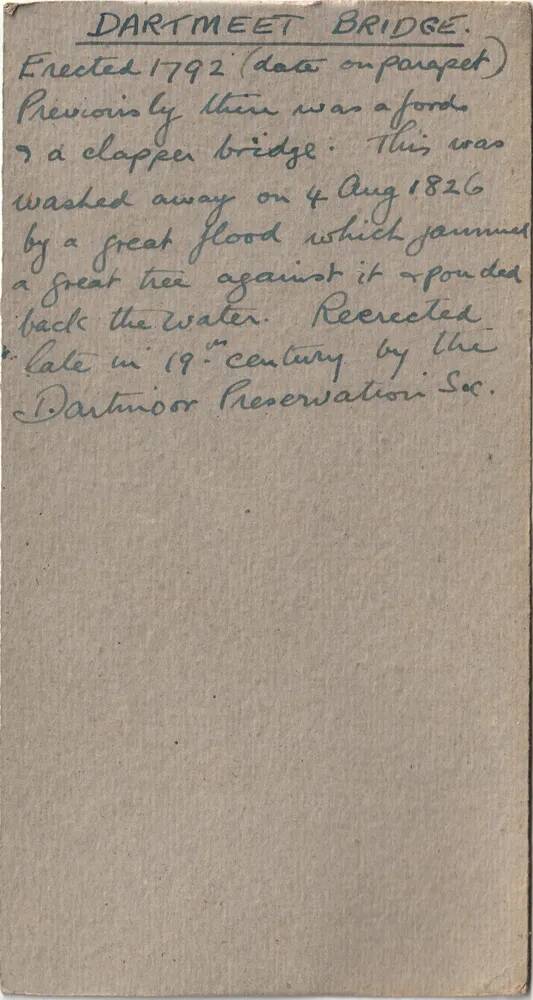 DARTMEET BRIDGE.
Erected 1792 (date on parapet)
Previously there was a ford
& a clapper bridge. This was
washed away on 4 Aug 1826
by a great flood which jammed
a great tree against it & ponded
back the water. Reerected
late in 19th century by the
Dartmoor Preservation Soc.